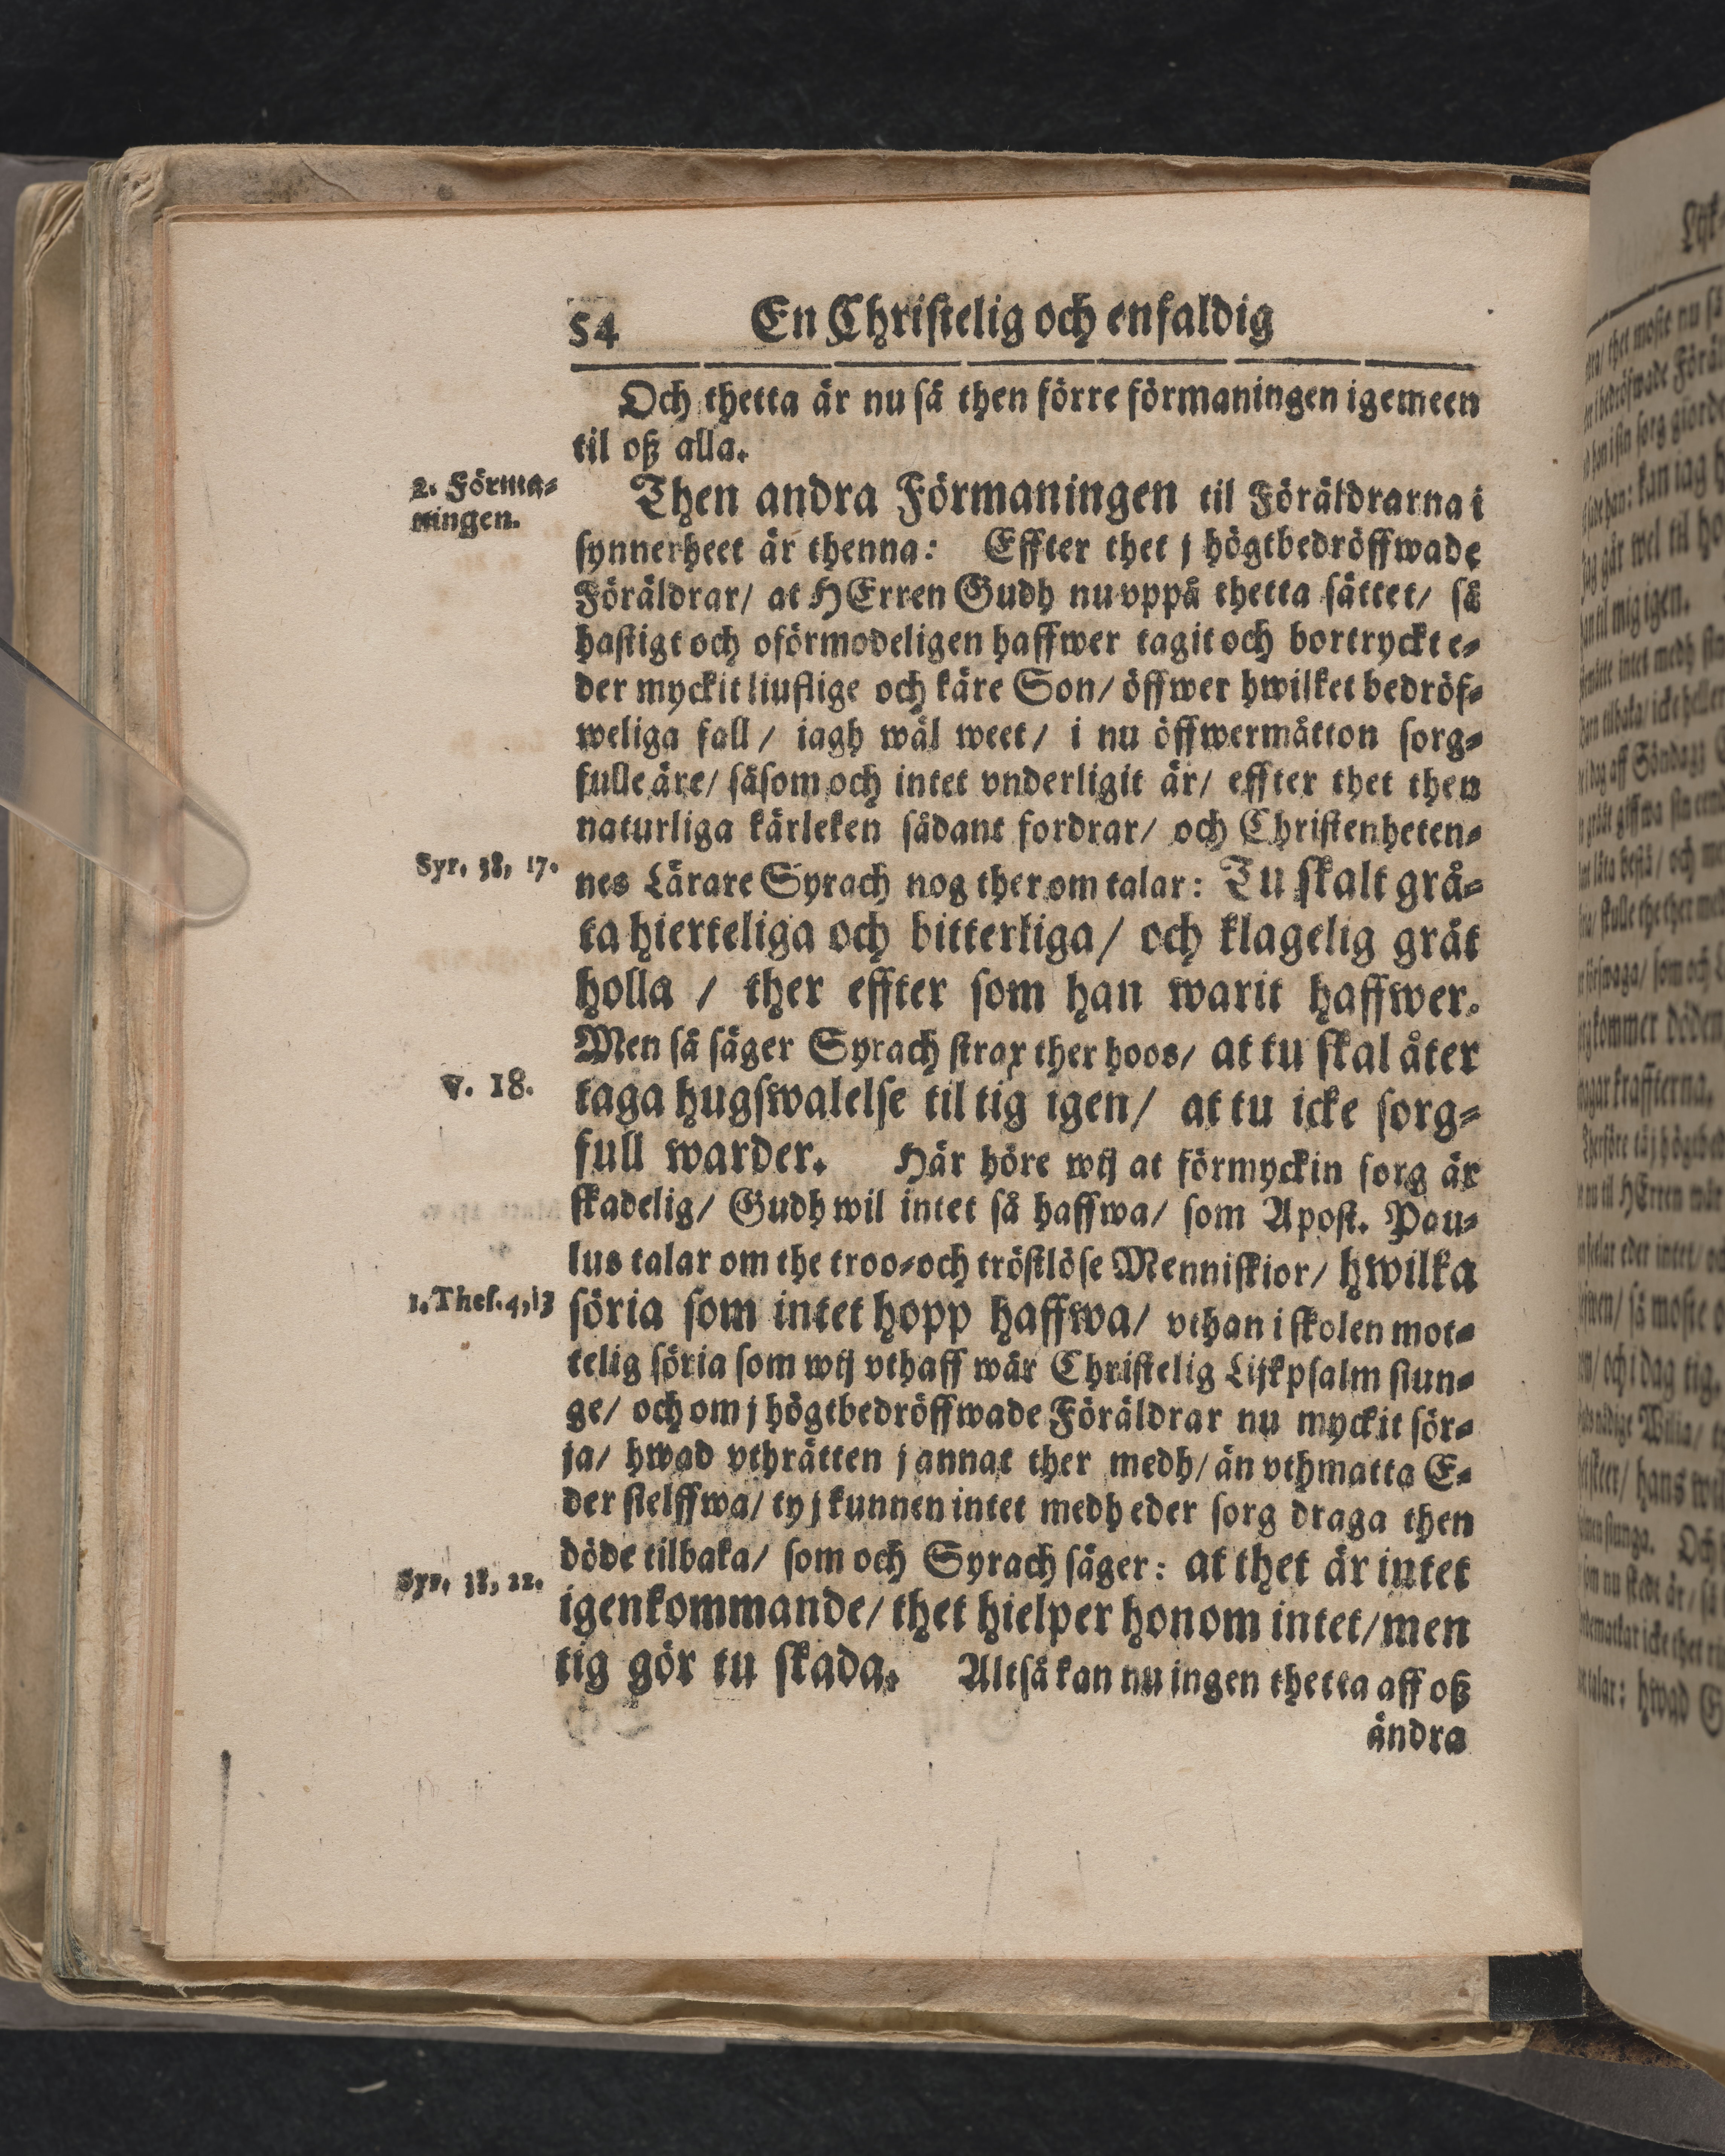 54 En Christelig och enfaldig
Och thetta är nu så then förre förmaningen igemeen
til oß alla.
2. Förma-
ningen.
Then andra Förmaningen til Föräldrarna i
synnerheet är thenna: Effter thet j högtbedröffwade
Föräldrar/ at HErren Gudh nu vppå thetta sättet/ så
hastigt och oförmodeligen haffwer tagit och bortryckt e-
der myckit liuflige och käre Son/ öffwer hwilket bedröf-
weliga fall/ iagh wäl weet/ i nu öffwermåtton sorg-
fulle äre/ såsom och intet vnderligit är/ effter thet then
naturliga kärleken sådant fordrar/ och Christenheten-
Syr. 38, 17.
nes Lärare Syrach nog ther om talar: Tu skalt grå-
ta hierteliga och bitterliga/ och klagelig gråt
holla / ther effter som han warit haffwer.
Men så säger Syrach strax ther hoos/ at tu skal åter
v. 18.
taga hugswalelse til tig igen/ at tu icke sorg-
full warder. Här höre wij at förmyckin sorg är
skadelig/ Gudh wil intet så haffwa/ som Apost. Pau-
lus talar om the troo-och tröstlöse Menniskior/ hwilka
1. Thes. 4, 13
söria som intet hopp haffwa/ vthan i skolen mot-
telig söria som wij vthaff wår Christelig Lijkpsalm siun-
ge/ och om j högtbedröffwade Föräldrar nu myckit sör-
ja/ hwad vthrätten j annat ther medh/ än vthmatta E-
der sielffwa/ ty j kunnen intet medh eder sorg draga then
döde tilbaka/ som och Syrach säger: at thet är intet
Syr. 38, 22.
igenkommande/ thet hielper honom intet/ men
tig gör tu skada. Altså kan nu ingen thetta aff oß
ändra